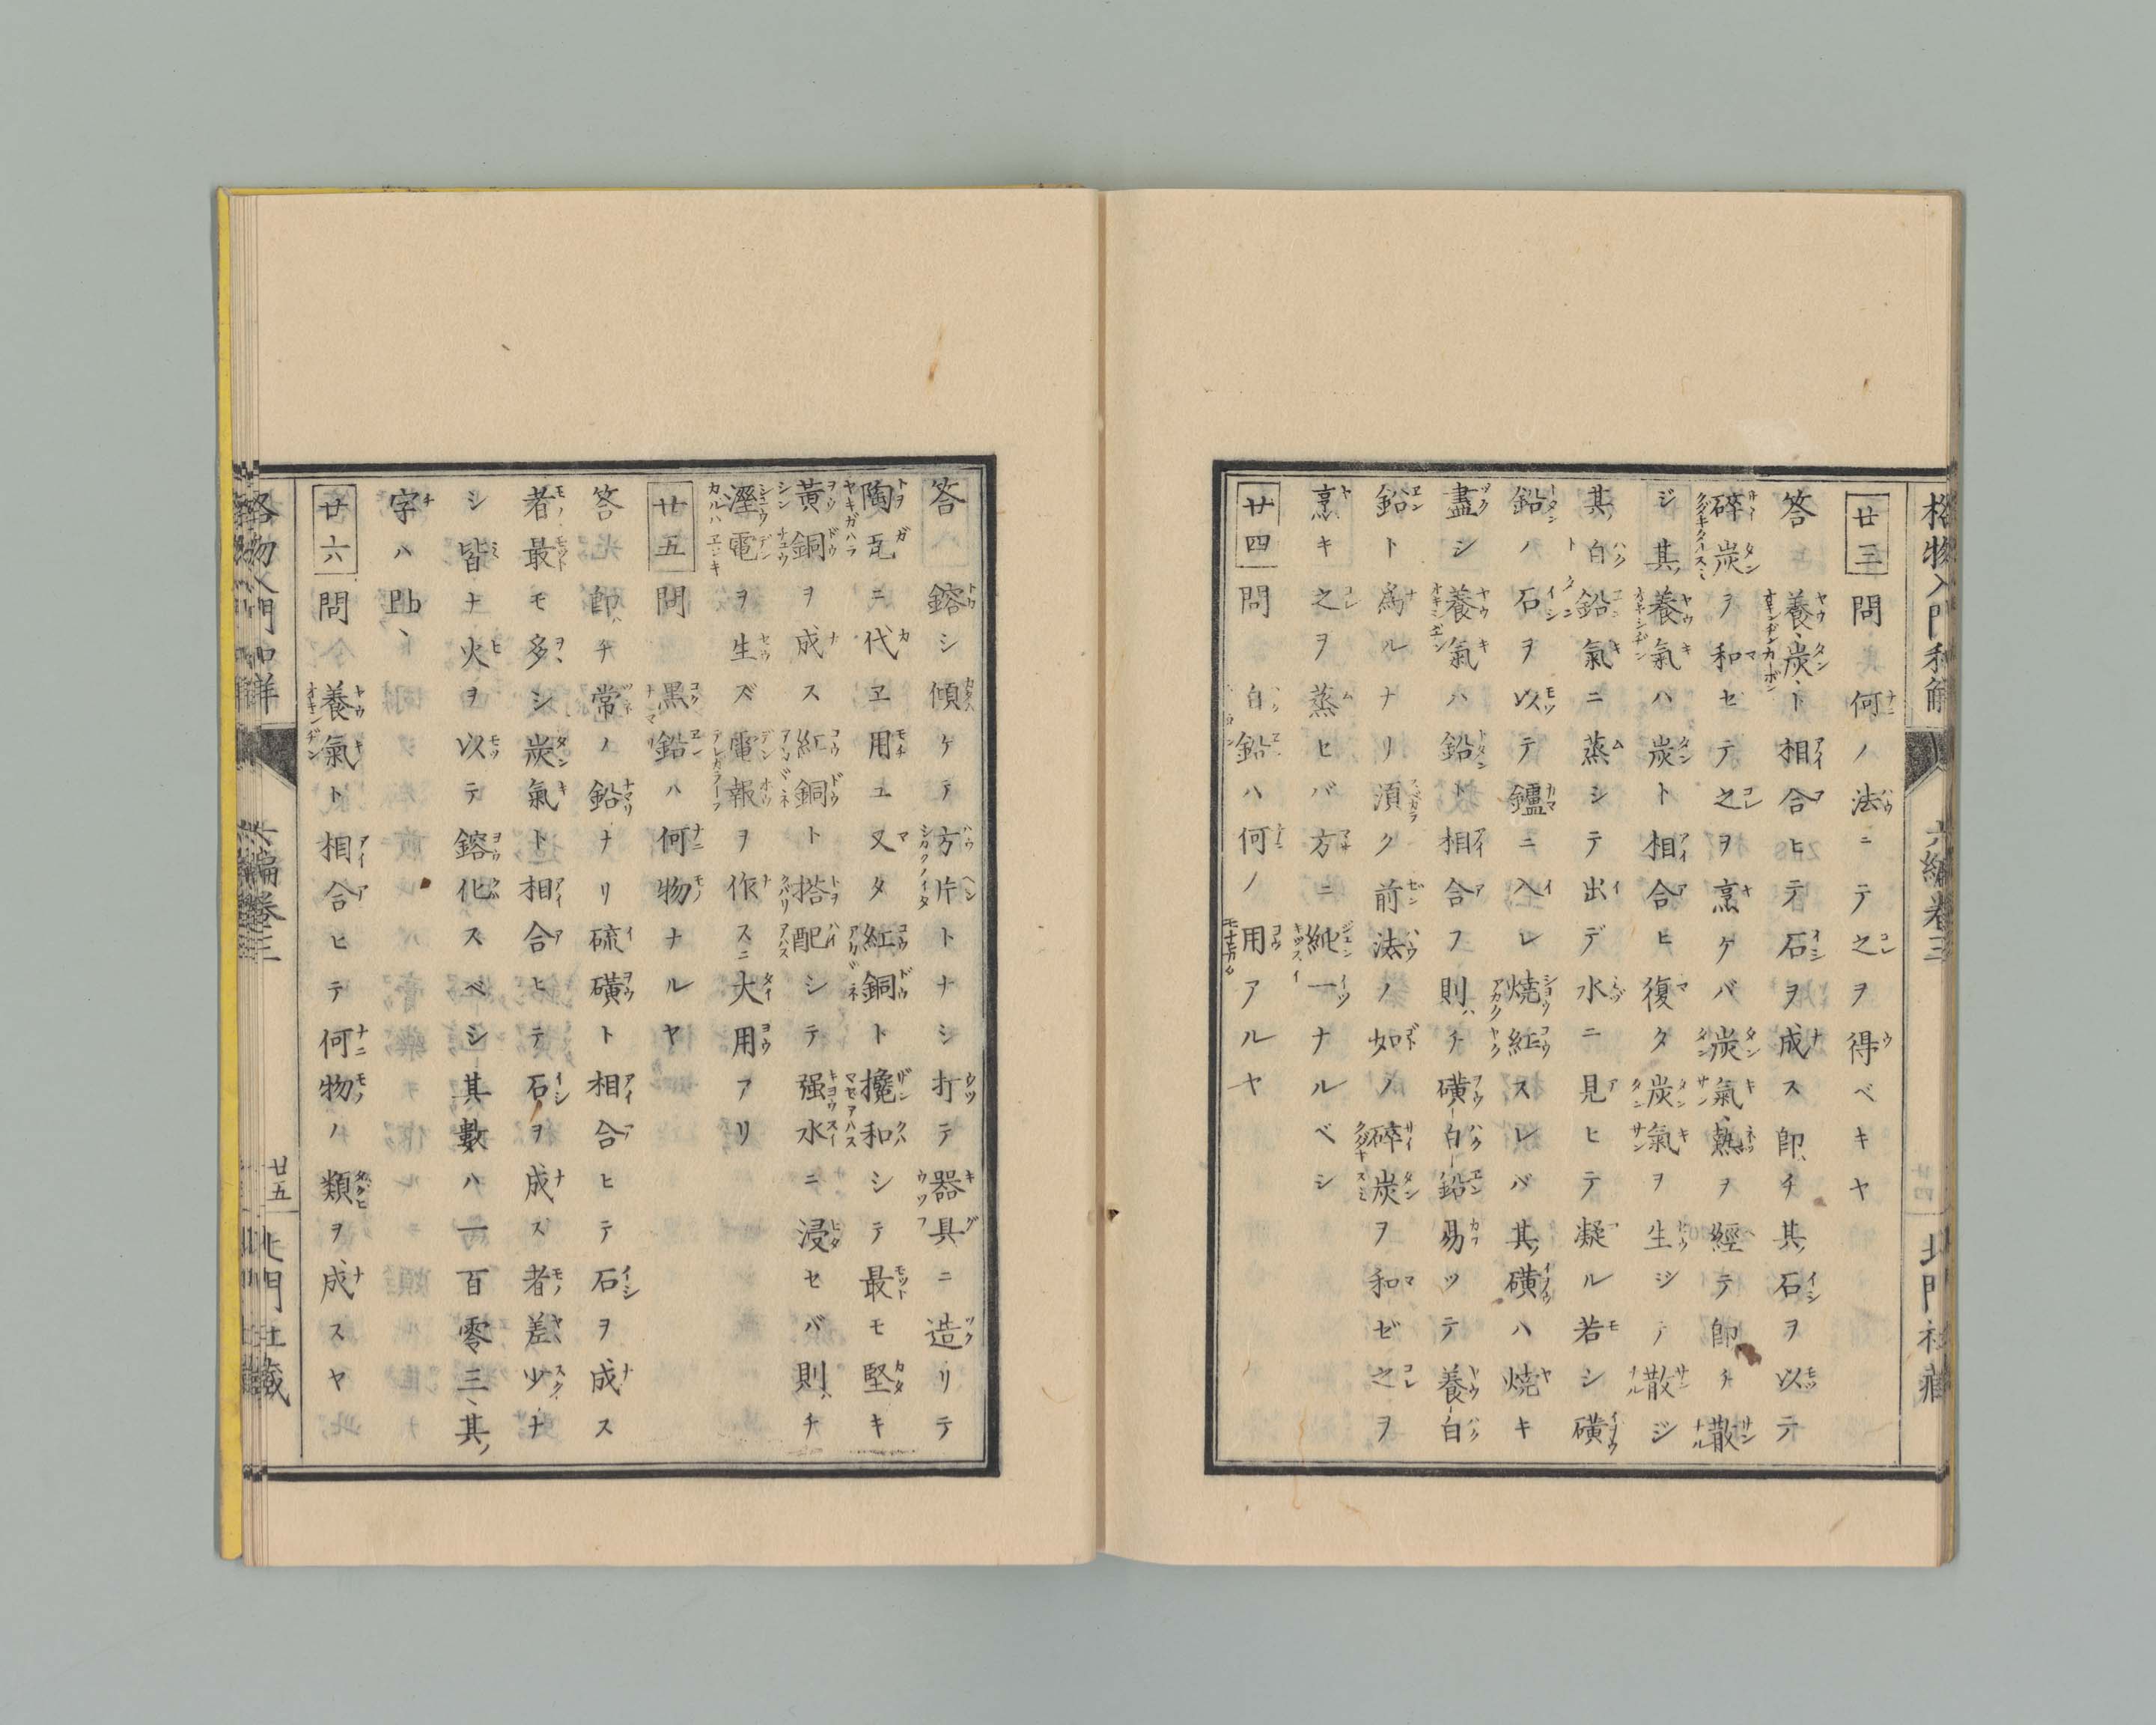 格物入門和解
六編卷三
北門社藏
廿三 問 何ノ法ニテ之ヲ得ベキヤ
答 養炭ト相合ヒテ石ヲ成ス卽チ其石ヲ以テ
碎炭ヲ和セテ之ヲ烹ケバ炭氣熱ヲ經テ卽チ散
ジ其養氣ハ炭ト相合ヒ復タ炭氣ヲ生シテ散ジ
其白鉛氣ニ蒸シテ出デ水ニ見ヒテ凝ル若シ礦
鉛ノ石ヲ以テ鑪ニ入レ燒紅スレバ其礦ハ燒キ
盡シ養氣ハ鉛ト相合フ則チ礦白鉛易ツテ養白
鉛ト爲ルナリ湏ク前法ノ如ノ碎炭ヲ和ゼ之ヲ
烹キ之ヲ蒸ヒバ方ニ純一ナルベシ
廿四 問 白鉛ハ何ノ用アルヤ
答 鎔シ傾ケテ方片トナシ打テ器具ニ造リテ
陶瓦ニ代ヱ用ユ又タ紅銅ト攙和シテ最モ堅キ
黃銅ヲ成ス紅銅ト搭配シテ强水ニ浸セバ則チ
溼電ヲ生ズ電報ヲ作スニ大用アリ
廿五 問 黑鉛ハ何物ナルヤ
答 卽チ常ノ鉛ナリ硫礦ト相合ヒテ石ヲ成ス
者最モ多シ炭氣ト相合ヒテ石ヲ成ス者差少ナ
シ皆ナ火ヲ以テ鎔化スベシ其數ハ一百零三、其
字ハ𠰻、
廿六 問 養氣ト相合ヒテ何物ノ類ヲ成スヤ
格物入門和解
六編卷三
廿五
北門社藏